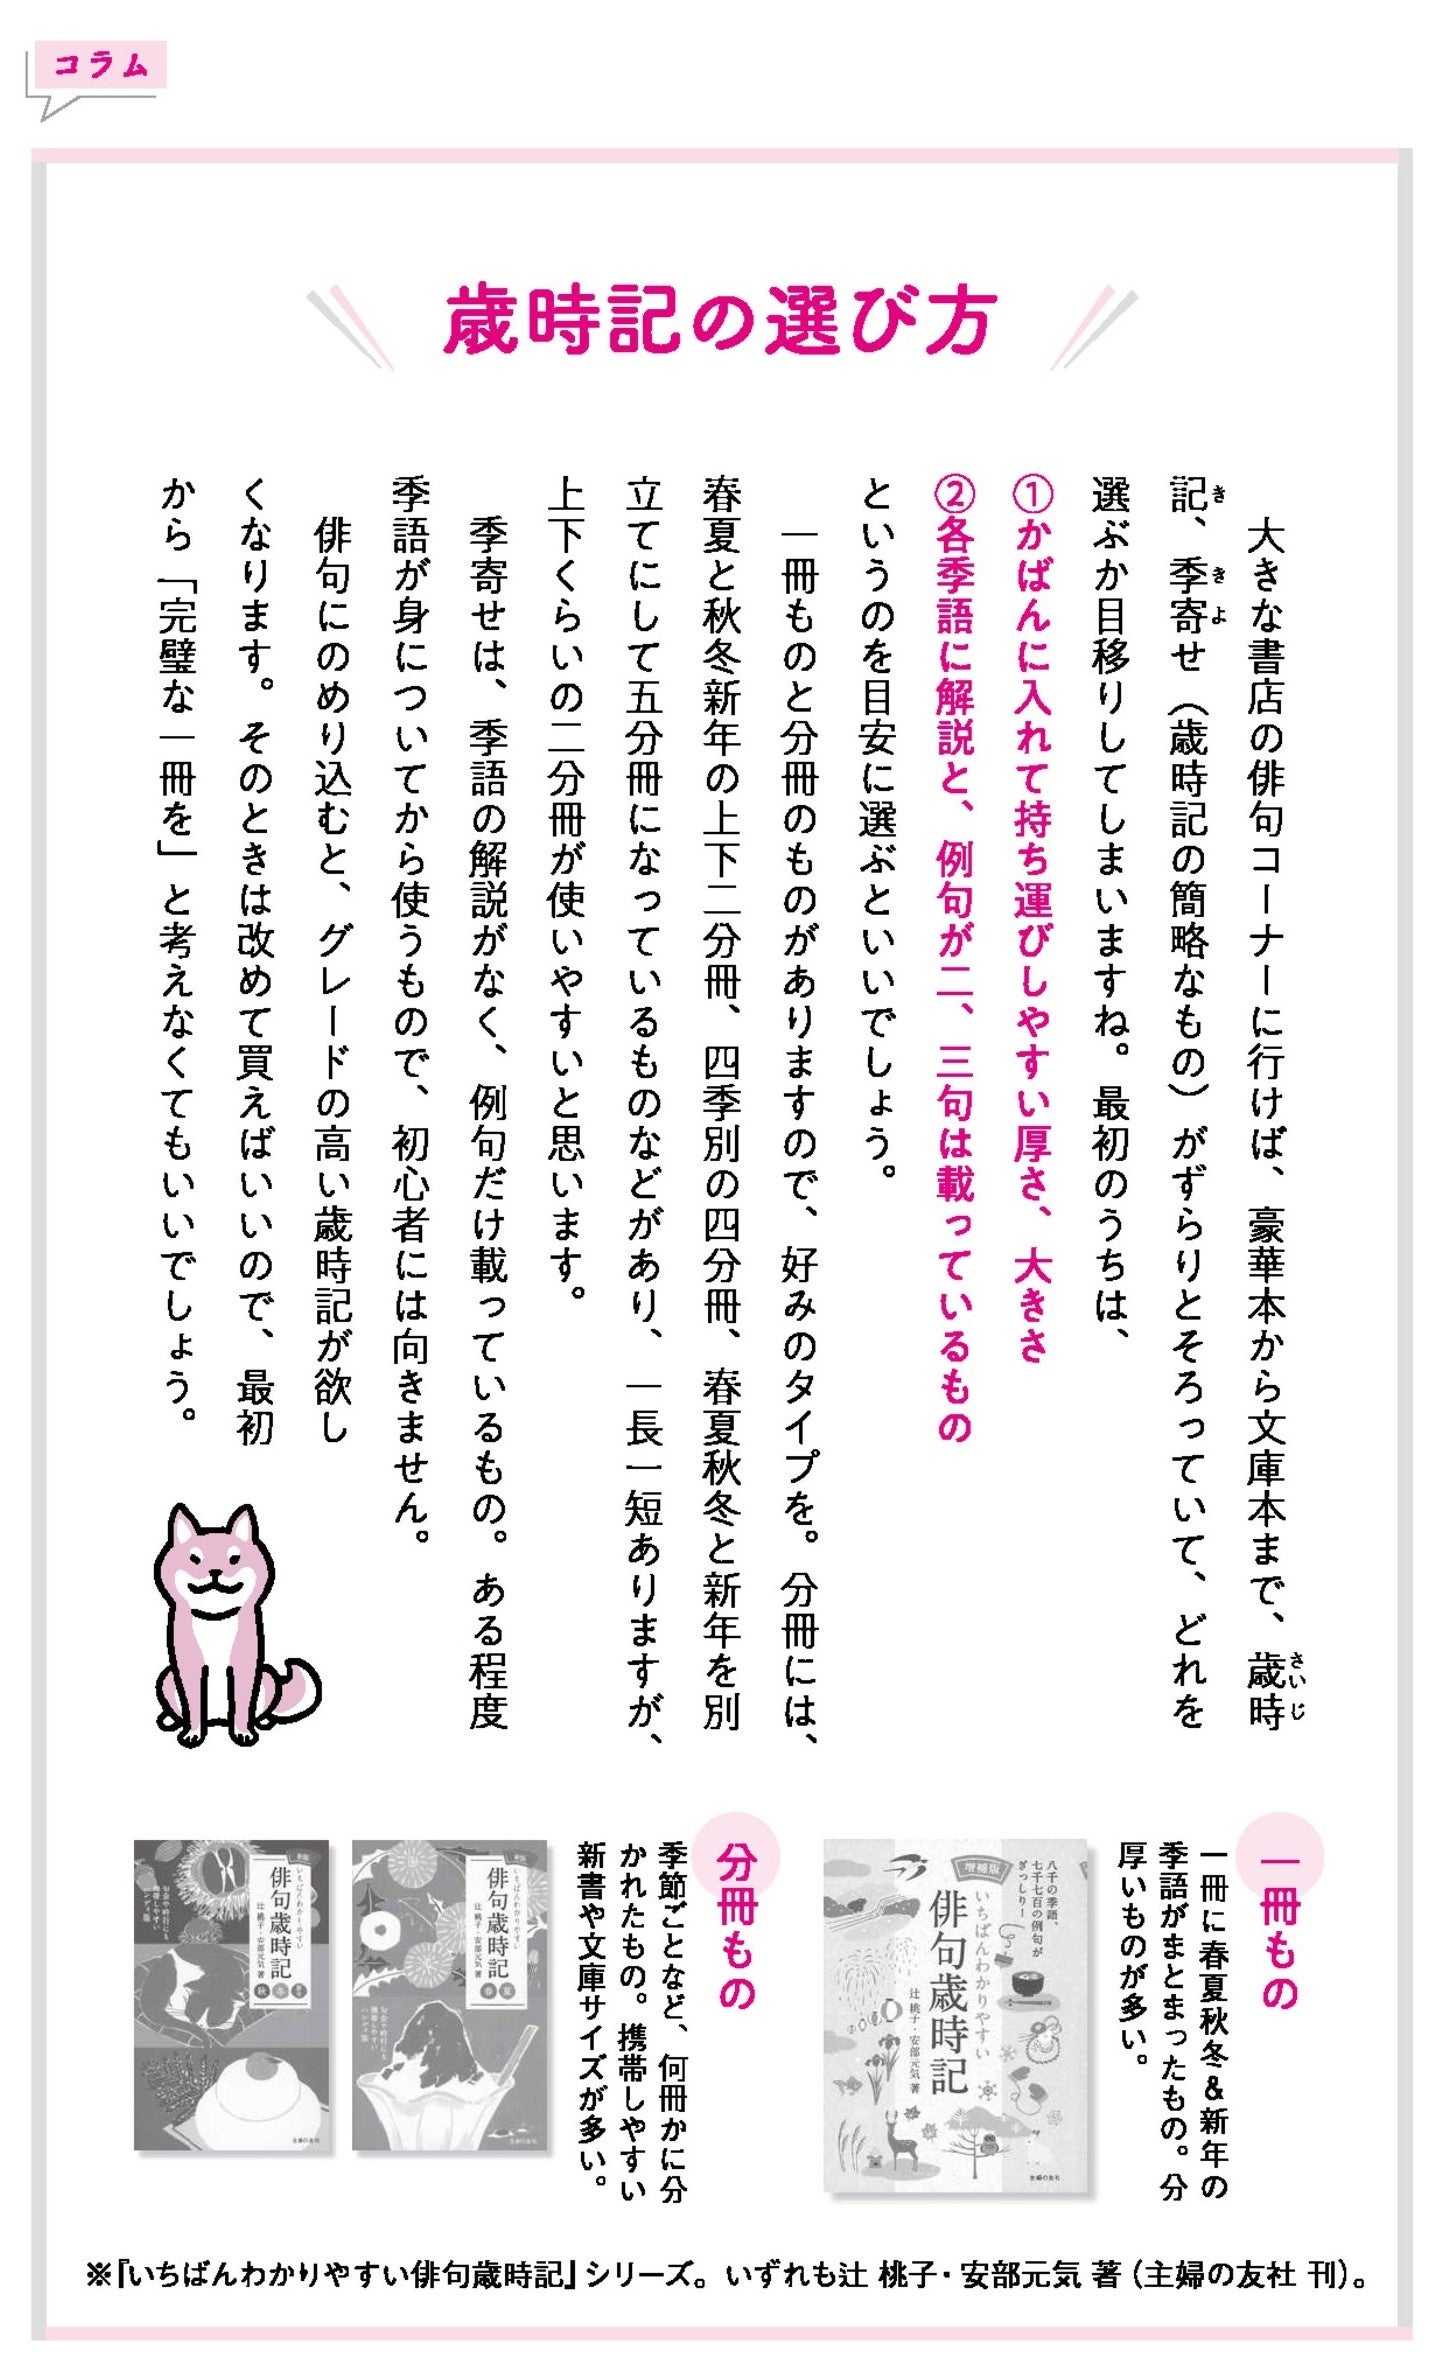 コラム
歳時記の選び方
大きな書店の俳句コーナーに行けば、豪華本から文庫本まで、歳時
さいじ
記、季寄せ（歳時記の簡略なもの）がずらりとそろっていて、どれを
き
きよ
選ぶか目移りしてしまいますね。最初のうちは、
①かばんに入れて持ち運びしやすい厚さ、大きさ
②各季語に解説と、例句が二、三句は載っているもの
というのを目安に選ぶといいでしょう。
一冊ものと分冊のものがありますので、好みのタイプを。分冊には、
春夏と秋冬新年の上下二分冊、四季別の四分冊、春夏秋冬と新年を別
立てにして五分冊になっているものなどがあり、一長一短ありますが、
上下くらいの二分冊が使いやすいと思います。
季寄せは、季語の解説がなく、例句だけ載っているもの。ある程度
季語が身についてから使うもので、初心者には向きません。
俳句にのめり込むと、グレードの高い歳時記が欲し
くなります。そのときは改めて買えばいいので、最初
から「完璧な一冊を」と考えなくてもいいでしょう。
一冊もの
一冊に春夏秋冬＆新年の
季語がまとまったもの。分
厚いものが多い。
八千の季語、
七千七百の例句が
ぎっしり！
増補版
いちばんわかりやすい
俳句歳時記
辻桃子・安部元気 著
主婦の友社
分冊もの
季節ごとなど、何冊かに分
かれたもの。携帯しやすい
新書や文庫サイズが多い。
いちばんわかりやすい
俳句歳時記
辻桃子・安部元気 著
春 夏
主婦の友社
いちばんわかりやすい
俳句歳時記
辻桃子・安部元気 著
秋 冬
主婦の友社
※『いちばんわかりやすい俳句歳時記』シリーズ。いずれも辻 桃子・安部元気 著（主婦の友社 刊）。